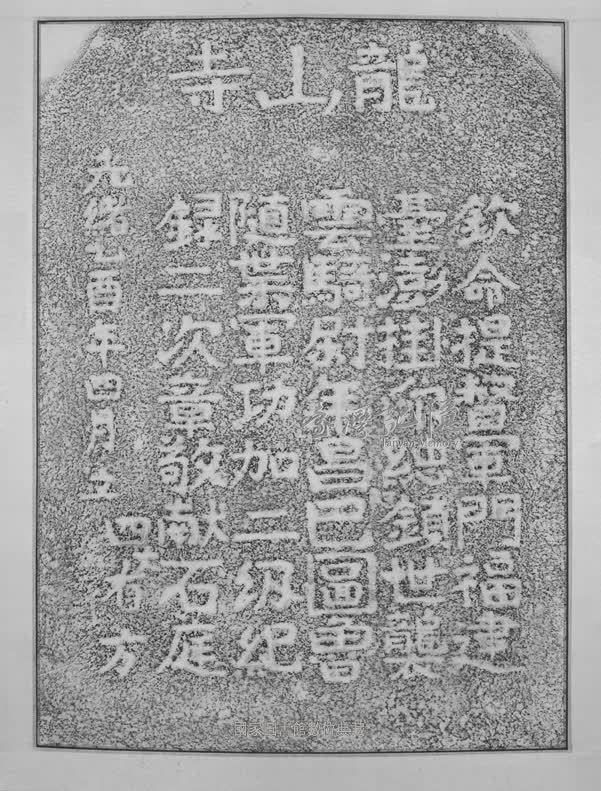 龍山寺
欽命提督軍門福建
臺澎掛印總鎮世襲
雲騎尉年昌巴圖魯
隨業軍功加二級紀
録二次章敬献石庭
光緒乙酉年四月立
四省方
臺灣記憶
Taiwan Memory
國家圖書館數位典藏